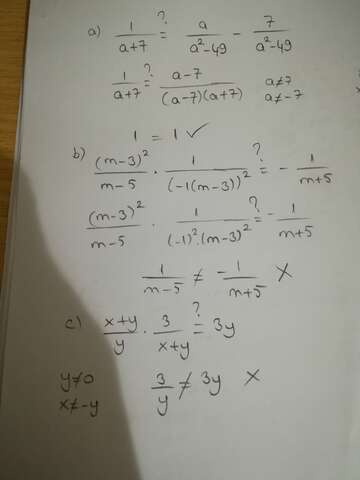 a) 1/(a+7) ?= a/(a²-49) - 7/(a²-49)
1/(a+7) ?= (a-7)/((a-7)(a+7)) a≠7
a≠-7
1 = 1 ✓
b) (m-3)²/(m-5) · 1/(-1(m-3))² ?= - 1/(m+5)
(m-3)²/(m-5) · 1/((-1)².(m-3)²) ?= - 1/(m+5)
1/(m-5) ≠ - 1/(m+5) X
c) (x+y)/y · 3/(x+y) ?= 3y
y≠0 3/y ≠ 3y X
x≠-y